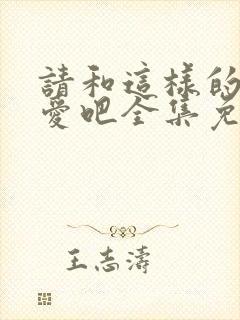 請和這樣的
愛吧全集免
王志濤